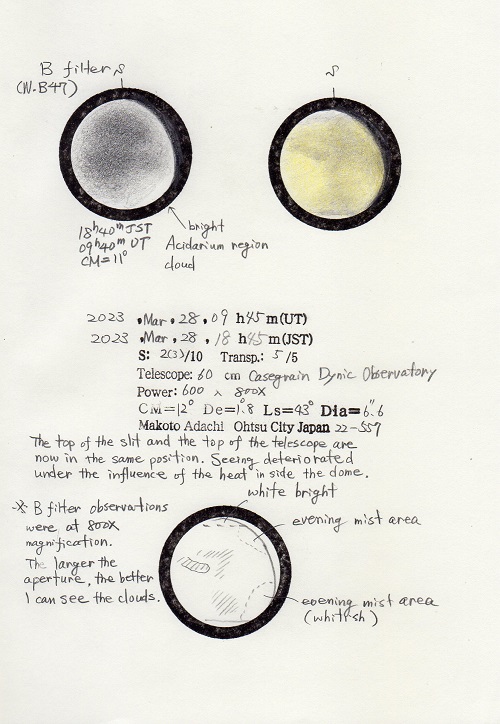 B filter S
(W.B47)
S
18h40m JST
09h40m UT
CM=11°
bright
Acidarium region
cloud
2023 .Mar. 28, 09 h45 m(UT)
2023 .Mar. 28, 18 h45 m(JST)
S: 2(3)/10 Transp.: 5 /5
Telescope: 60 cm Casegrain Dynic Observatory
Power: 600 x 800X
CM=12° De=1°.8 Ls=43° Dia=6".6
Makoto Adachi Ohtsu City Japan 22-557
The top of the slit and the top of the telescope are
now in the same position. Seeing deteriorated
under the influence of the heat in side the dome.
white bright
※ B filter observations
were at 800X
magnification.
The larger the
aperture, the better
I can see the clouds.
evening mist area
evening mist area
(whitish)